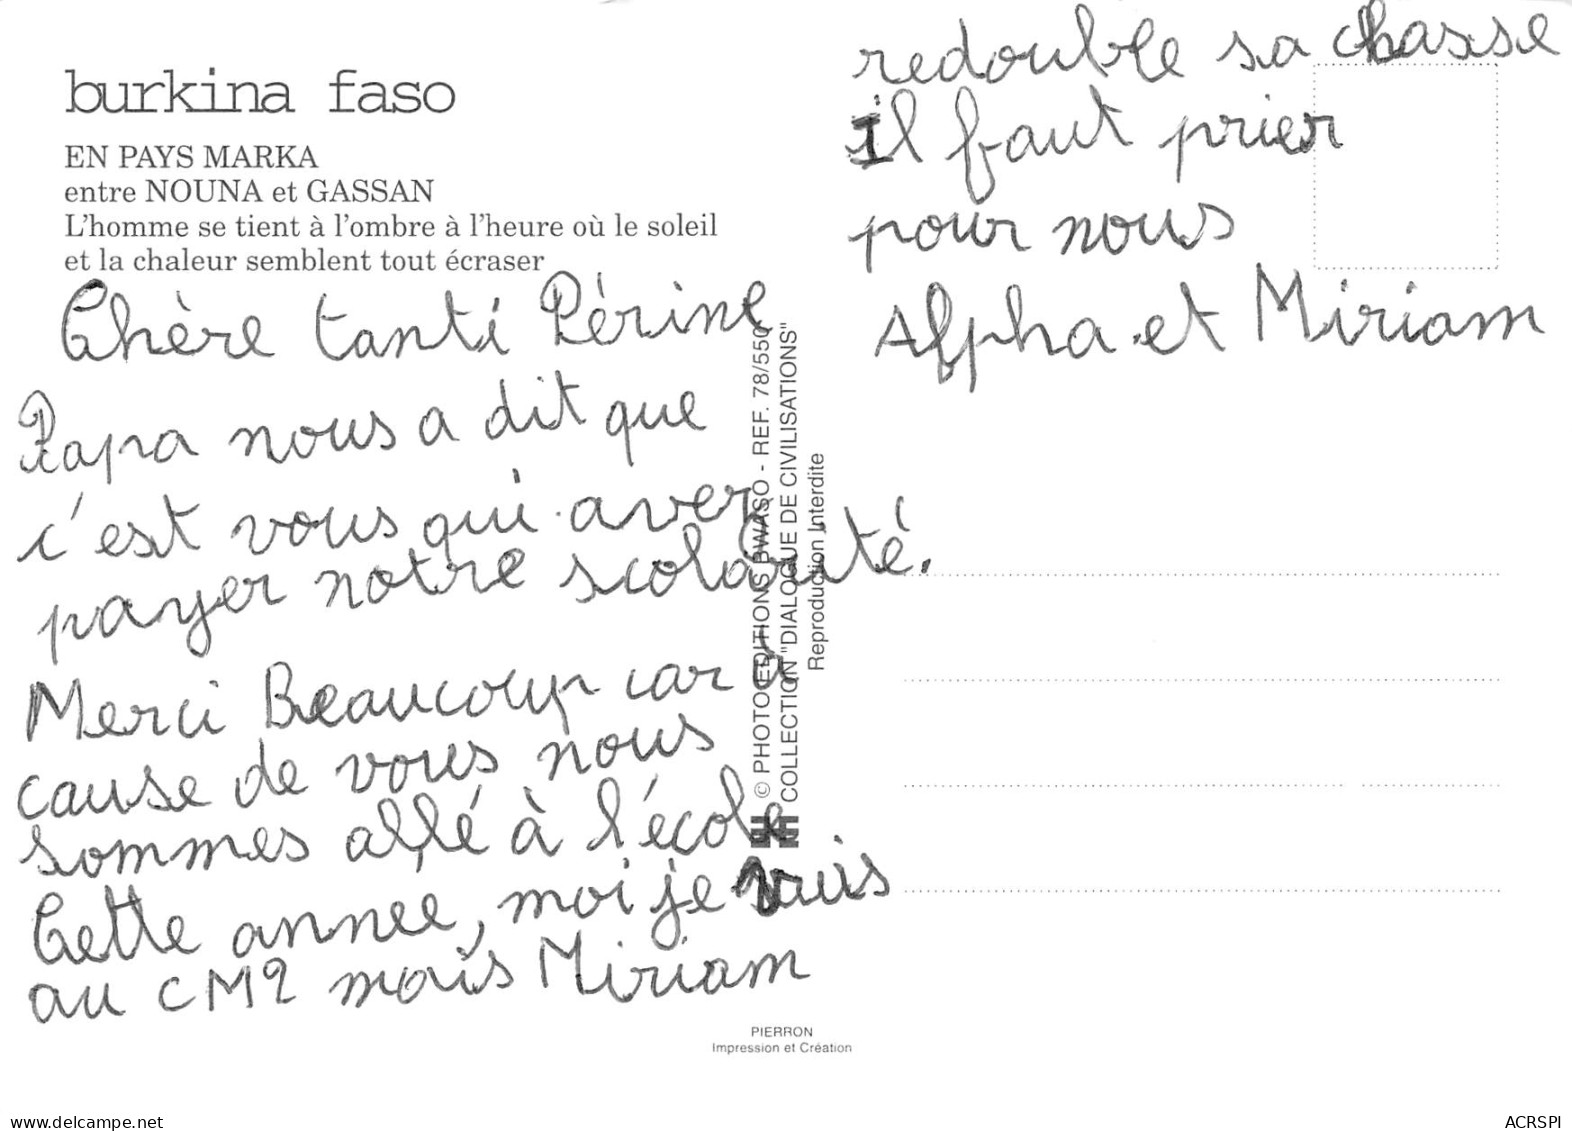 burkina faso
EN PAYS MARKA
entre NOUNA et GASSAN
L'homme se tient à l'ombre à l'heure où le soleil
et la chaleur semblent tout écraser
Chère tanti Périne
Papa nous a dit que
c'est vous qui aver
payer notre scolarité.
Merci Beaucoup car à
cause de vous nous
sommes allé à l'école
Cette année, moi je suis
au CM2 mais Miriam
redouble sa classe
Il faut prier
pour nous
Alpha et Miriam
© PHOTO EDITIONS BWASO - REF. 78/550
COLLECTION "DIALOGUE DE CIVILISATIONS"
Reproduction Interdite
PIERRON
Impression et Création
www.delcampe.net
ACRSPI